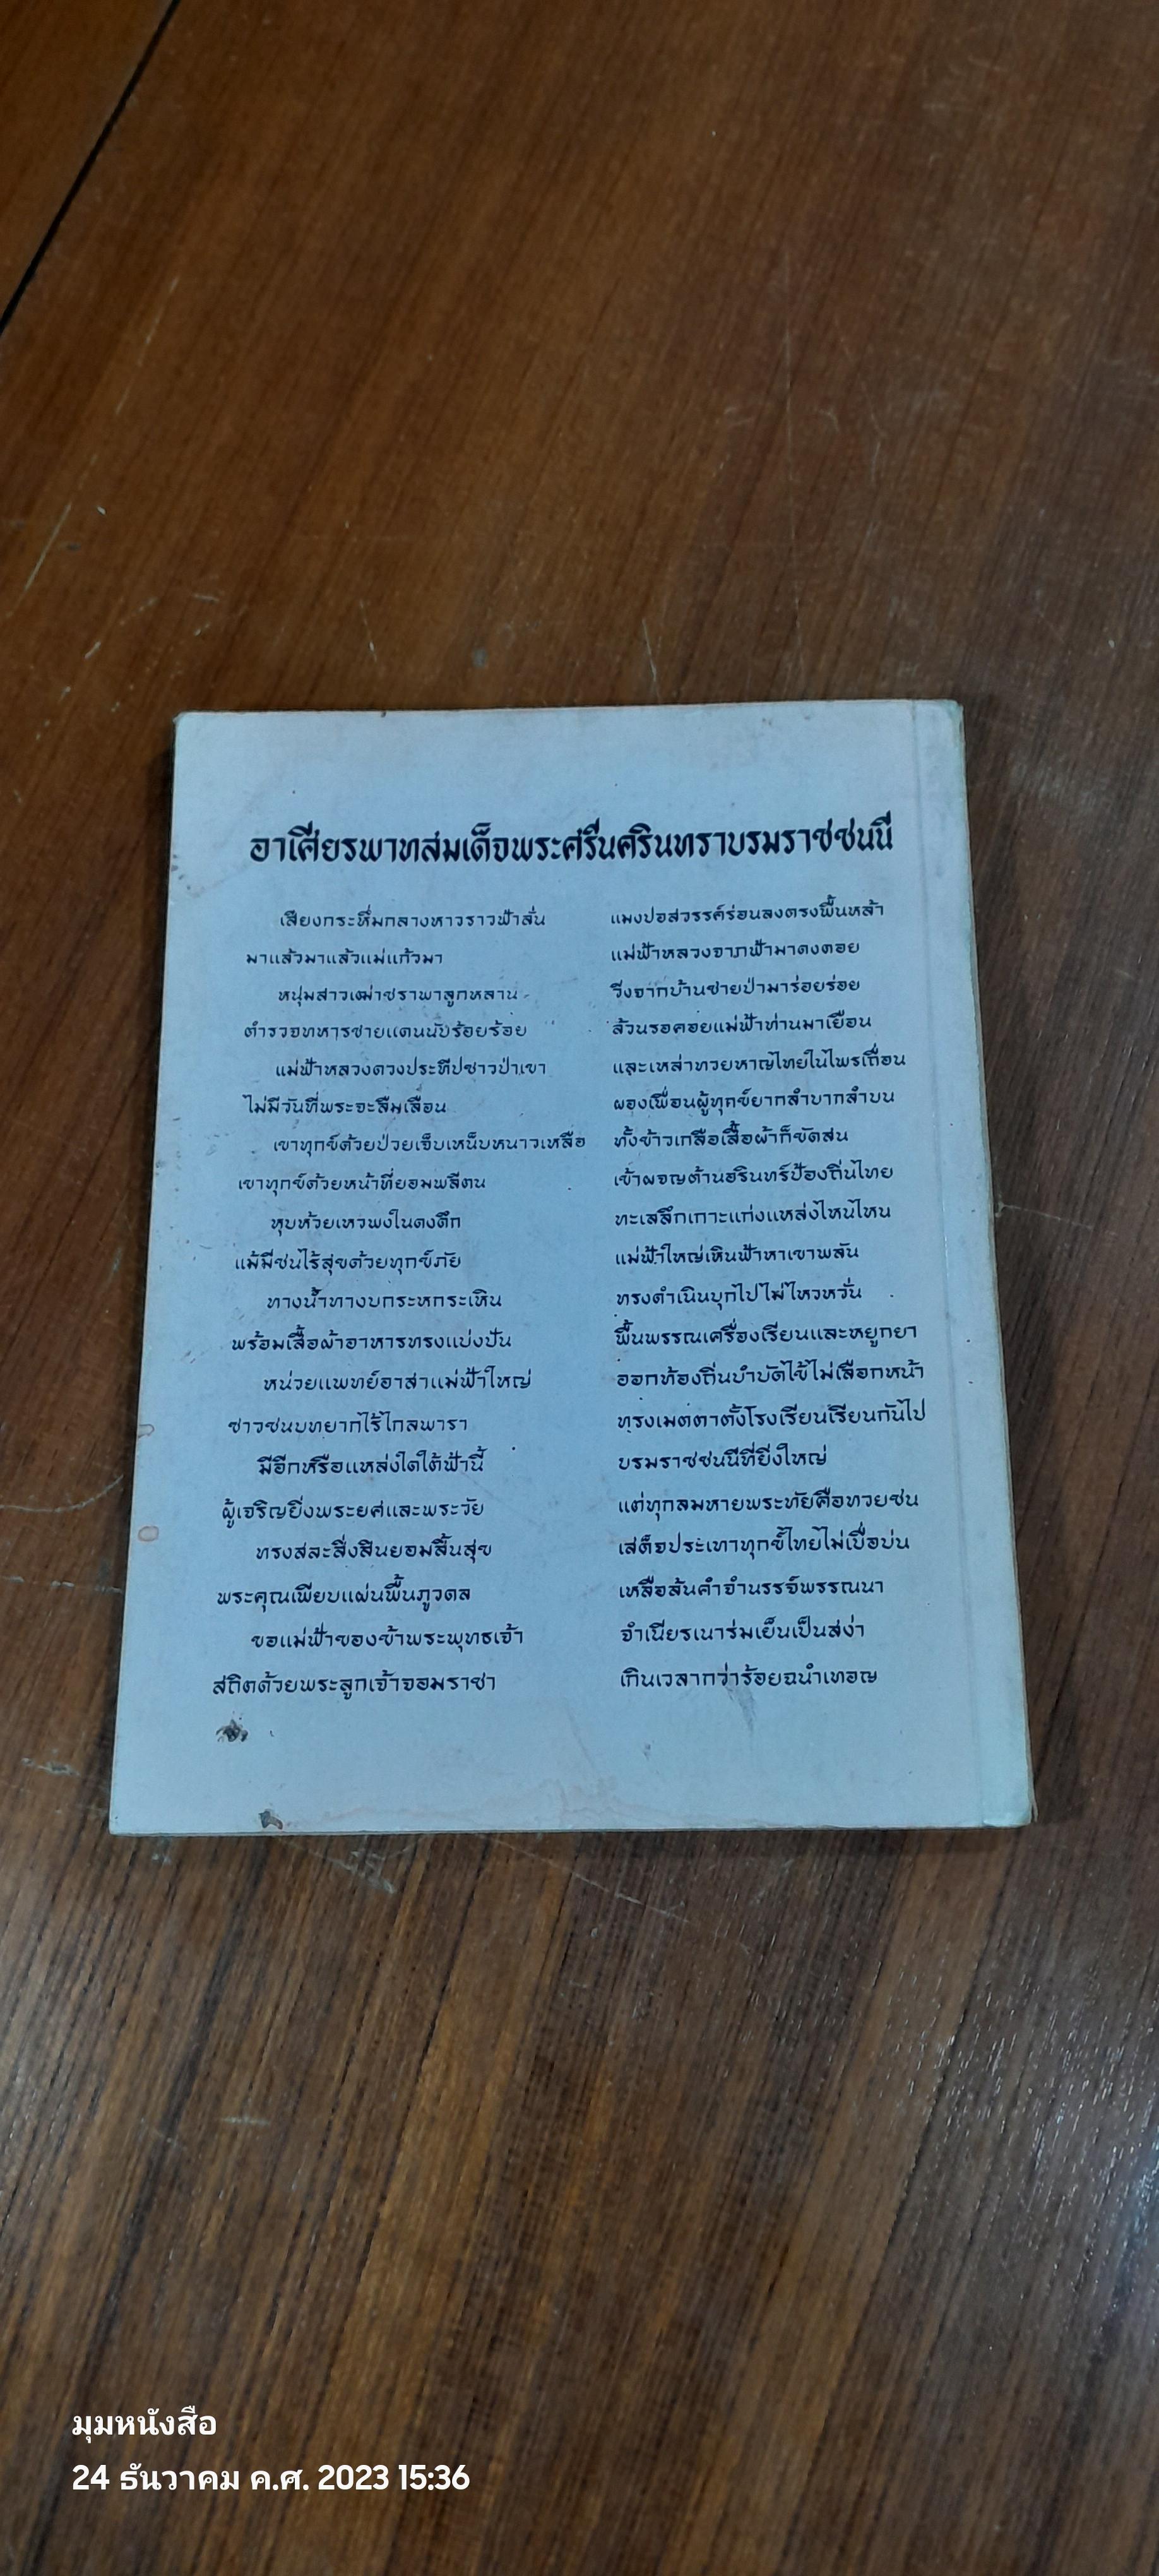 อาเศียรพาทสมเด็จพระศรีนครินทราบรมราชชนนี
เสียงกระหึ่มกลางหาวราวฟ้าลั่น แมงปอสวรรค์ร่อนลงตรงพื้นหล้า
มาแล้วมาแล้วแม่แก้วมา แม่ฟ้าหลวงจากฟ้ามาดงดอย
หนุ่มสาวเฒ่าชราพาลูกหลาน วิ่งจากบ้านชายป่ามาร่อยร่อย
ตำรวจทหารชายแดนนับร้อยร้อย ล้วนรอคอยแม่ฟ้าท่านมาเยือน
แม่ฟ้าหลวงดวงประทีปชาวป่าเขา และเหล่าทวยหาญไทยในไพรเถื่อน
ไม่มีวันที่พระจะลืมเลือน ผองเพื่อนผู้ทุกข์ยากลำบากลำบน
เขาทุกข์ด้วยป่วยเจ็บเหน็บหนาวเหลือ ทั้งข้าวเกลือเสื้อผ้าก็ขัดสน
เขาทุกข์ด้วยหน้าที่ยอมพลีตน เข้าผจญต้านอรินทร์ป้องถิ่นไทย
หุบห้วยเหวพงในดงดึก ทะเลลึกเกาะแก่งแหล่งไหนไหน
แม้มีชนไร้สุขด้วยทุกข์ภัย แม่ฟ้าใหญ่เหินฟ้าหาเขาพลัน
ทางน้ำทางบกระหกระเหิน ทรงดำเนินบุกไปไม่ไหวหวั่น
พร้อมเสื้อผ้าอาหารทรงแบ่งปัน พื้นพรรณเครื่องเรียนและหยูกยา
หน่วยแพทย์อาสาแม่ฟ้าใหญ่ ออกท้องถิ่นบำบัดไข้ไม่เลือกหน้า
ชาวชนบทยากไร้ไกลพารา ทรงเมตตาตั้งโรงเรียนเรียนกันไป
มีอีกหรือแหล่งใดใต้ฟ้านี้ บรมราชชนนีที่ยิ่งใหญ่
ผู้เจริญยิ่งพระยศและพระวัย แต่ทุกลมหายพระทัยคือทวยชน
ทรงสละสิ่งสินยอมสิ้นสุข เสด็จประเทาทุกข์ไทยไม่เบื่อบ่น
พระคุณเพียบแผ่นพื้นภูวดล เหลือล้นคำจำนรรจ์พรรณนา
ขอแม่ฟ้าของข้าพระพุทธเจ้า จำเนียรเนาร่มเย็นเป็นสง่า
สถิตด้วยพระลูกเจ้าจอมราชา เกินเวลากว่าร้อยฉนำเทอญ
มุมหนังสือ
24 ธันวาคม ค.ศ. 2023 15:36